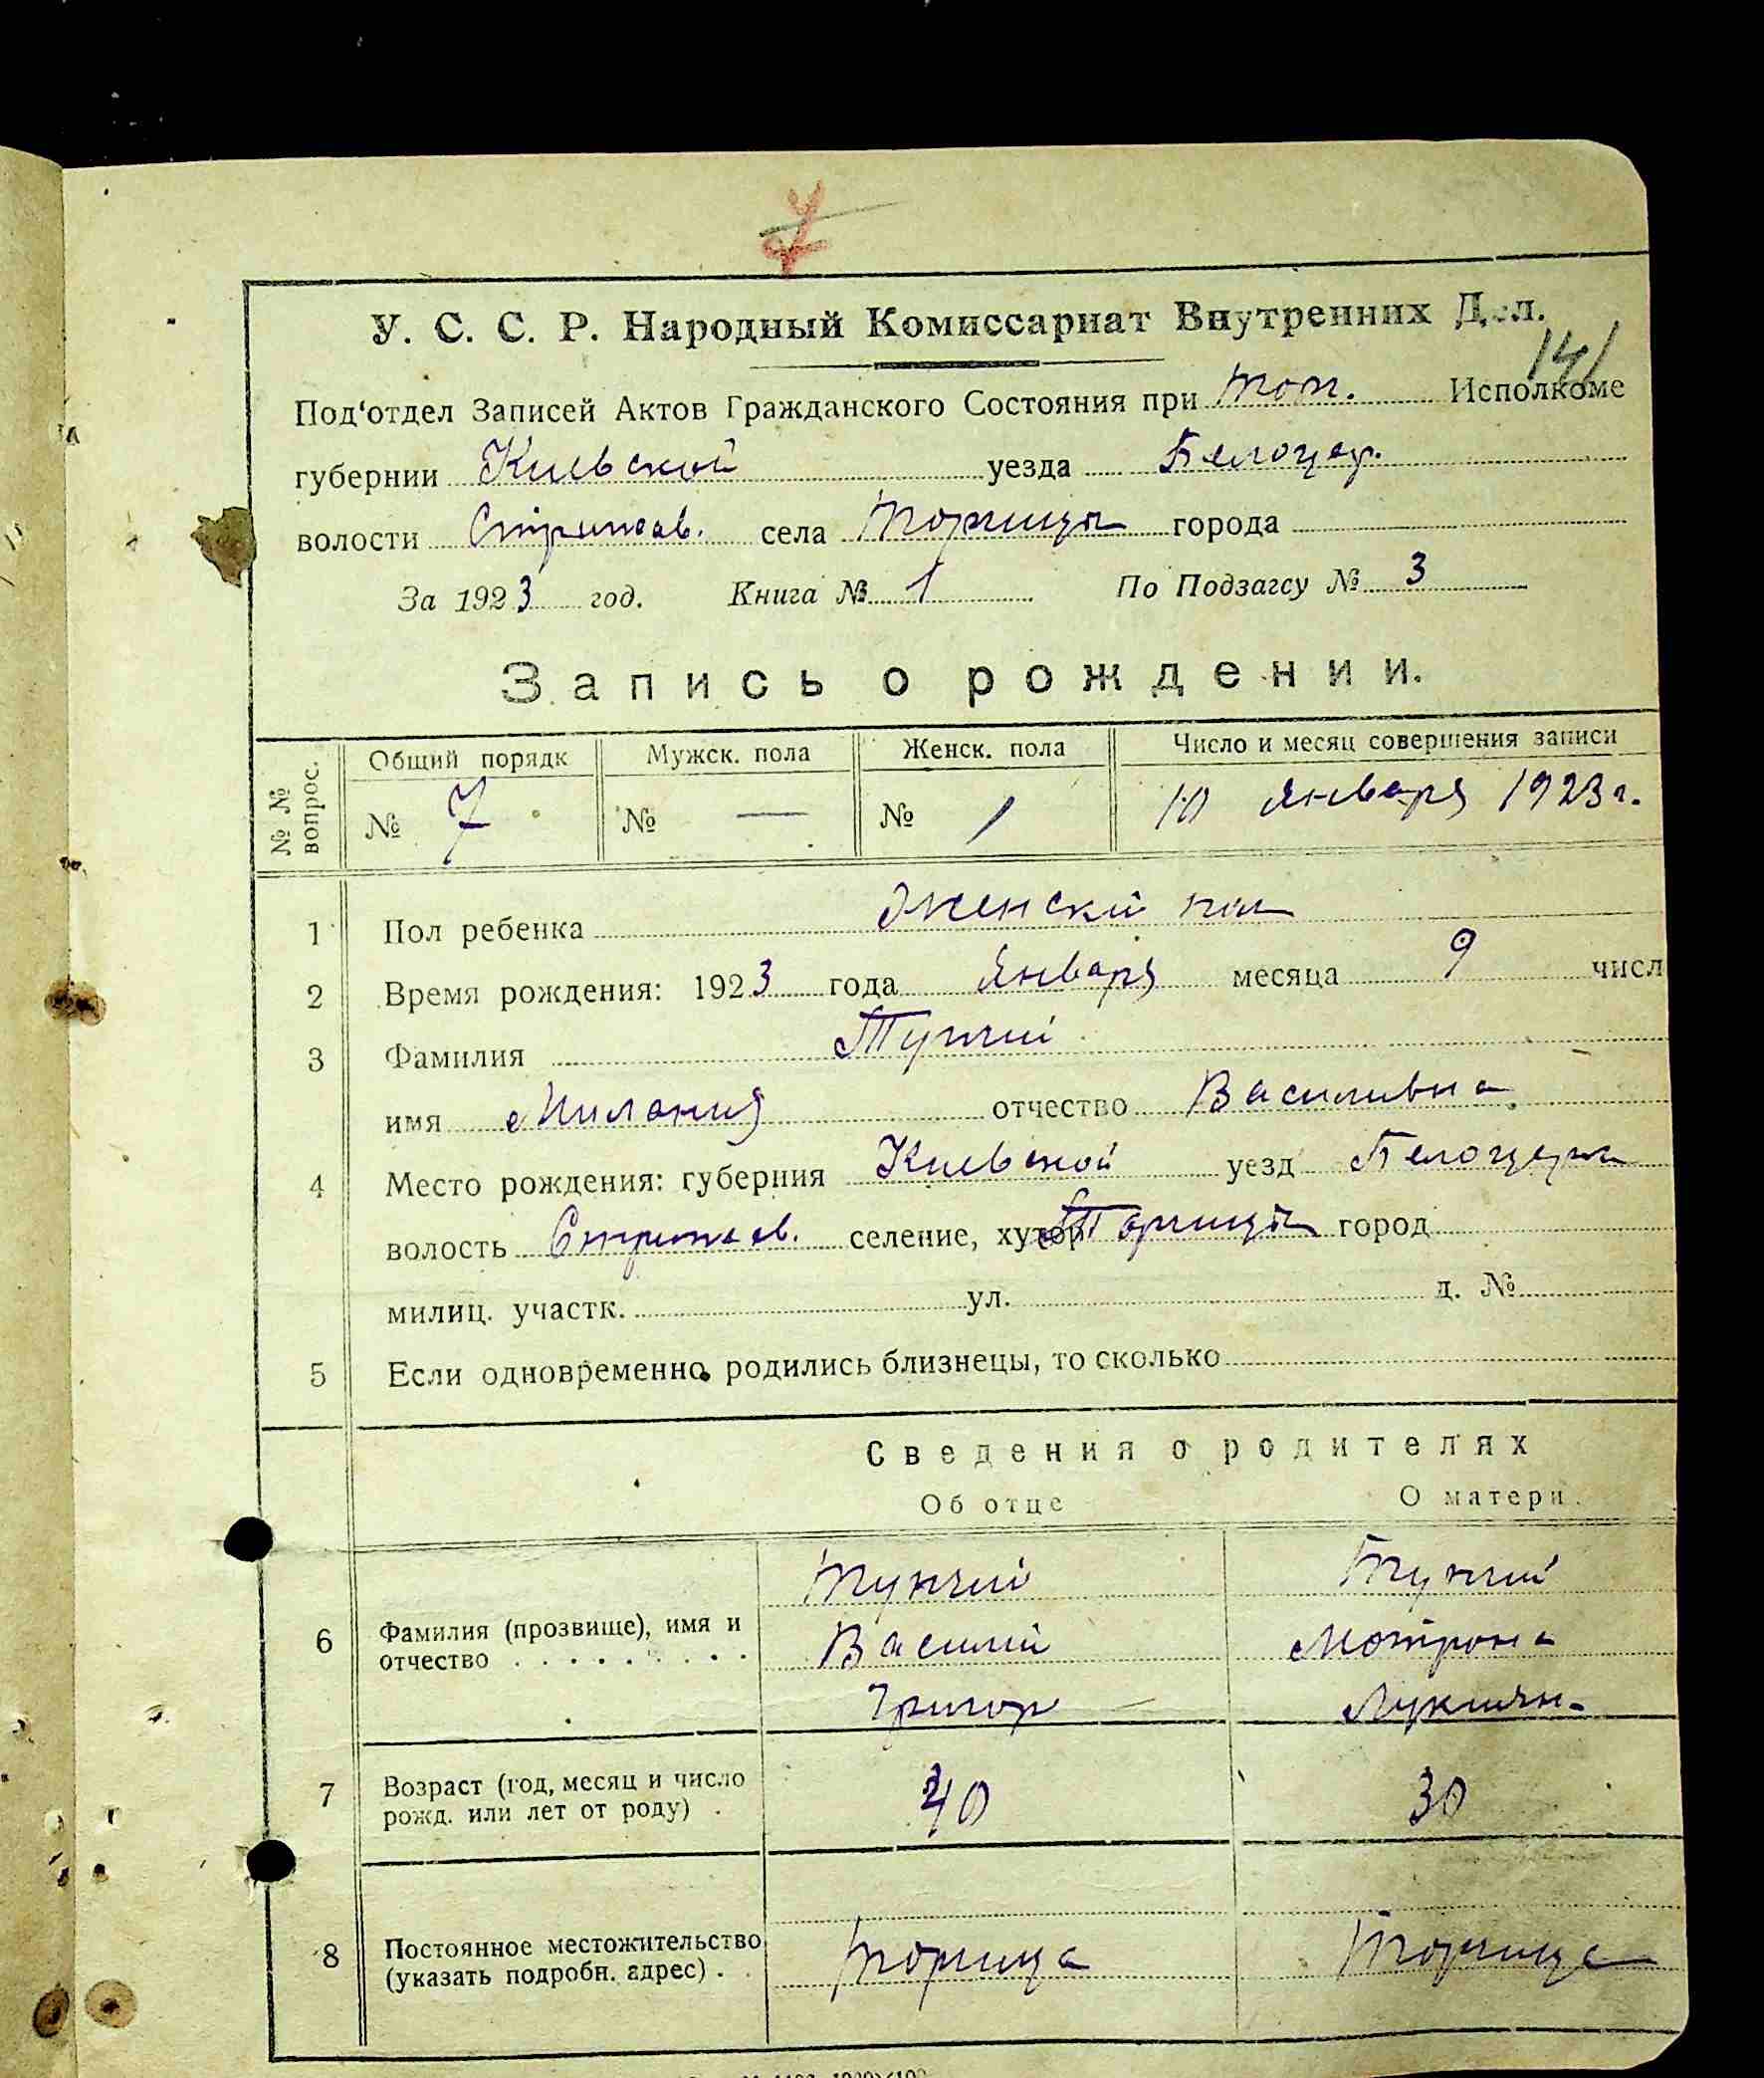 7
У. С. С. Р. Народный Комиссариат Внутренних Дел.
141
Под'отдел Записей Актов Гражданского Состояния при Исполкоме
губернии Киевской уезда Белоцер.
волости Стрижав. села Торчица города
За 1923 год. Книга № 1 По Подзагсу № 3
Запись о рождении.
№ № вопрос. Общий порядк Мужск. пола Женск. пола Число и месяц совершения записи
№ 7 № — № 1 10 Января 1923 г.
1 Пол ребенка Женский пол
2 Время рождения: 1923 года Января месяца 9 числ
3 Фамилия
имя Милания отчество Василивна
4 Место рождения: губерния Киевской уезд Белоцерк
волость Стрижав. селение, хутор Торчица город
милиц. участк. ул. д. №
5 Если одновременно родились близнецы, то сколько
Сведения о родителях
Об отце О матери
6 Фамилия (прозвище), имя и
отчество Василий Мотрона
Григор Лукиян-
7 Возраст (год, месяц и число
рожд. или лет от роду) 40 30
8 Постоянное местожительство
(указать подробн. адрес) Торчица Торчица